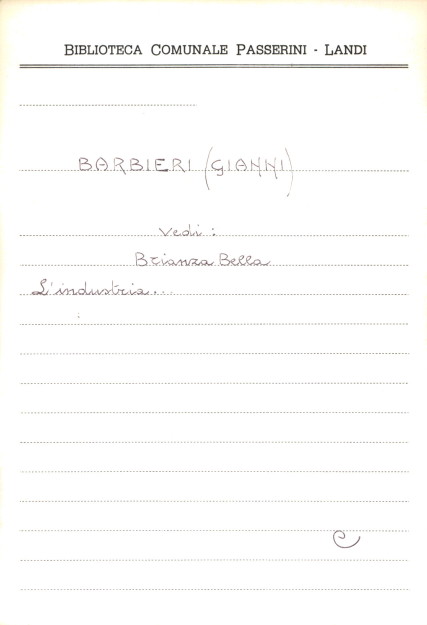 BIBLIOTECA COMUNALE PASSERINI - LANDI
BARBIERI (GIANNI)
Vedi :
Brianza Bella
L'industria...